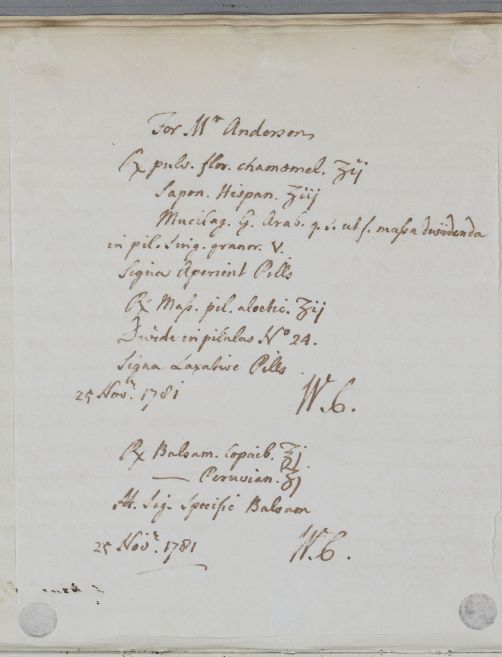 For Mr Anderson
℞ pulv. flor. chamomel. ʒij
Sapon. Hispan. ʒiij
Mucilag. G. Arab. q. s. ut f. massa dividenda
in pil. sing. granor. V.
Signa Aperient Pills
℞ Mass. pil. aloetic. ʒij
Divide in pilulas No 24.
Signa Laxative Pills
25 Novr. 1781
W.C.
℞ Balsam. Copaib. ʒj
— Peruvian. ʒj
M. Sig. Specific Balsam
25 Novr. 1781
W.C.